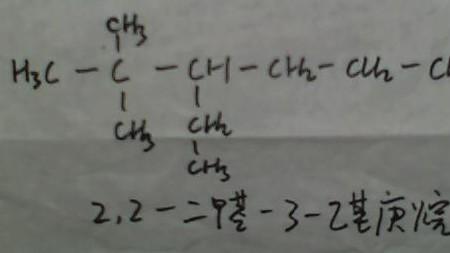 CH₃
H₃C－C－CH－CH₂－CH₂－CH
CH₃ CH₂
CH₃
2,2-二甲基-3-乙基庚烷